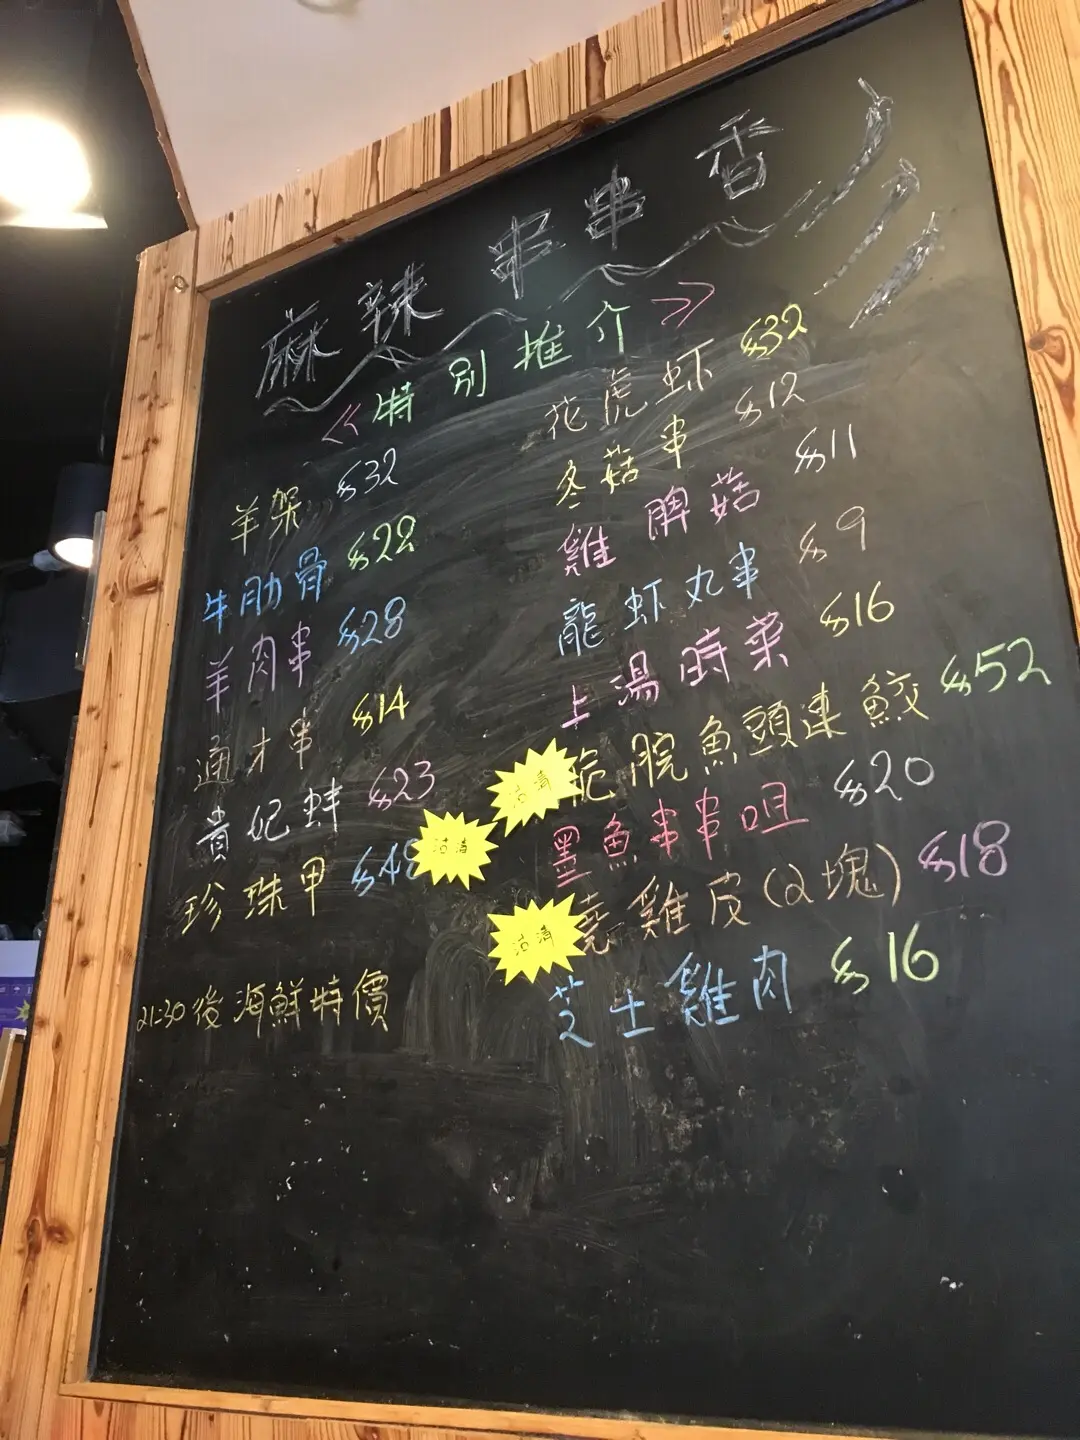 麻辣串串香
《特別推介》
羊架 $32
牛肋骨 $22
羊肉串 $28
通才串 $14
貴妃蚌 $23
珍珠甲 $48
沽清
21:30後海鮮特價
花虎虾 $32
冬菇串 $12
雞脾菇 $11
龍虾丸串 $9
上湯時菜 $16
沽清
脆脘魚頭連鮫 $52
墨魚串串咀 $20
沽清
燒雞皮(2塊) $18
芝士雞肉 $16